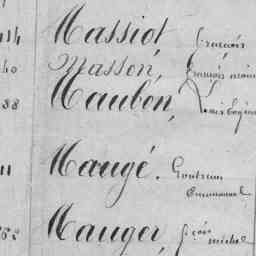 Massiot, françois
40 Masson, françois marie
88 Maubon, Louis Eugène
11 Maugé. Gontran
Emmanuel
Mauger, michel